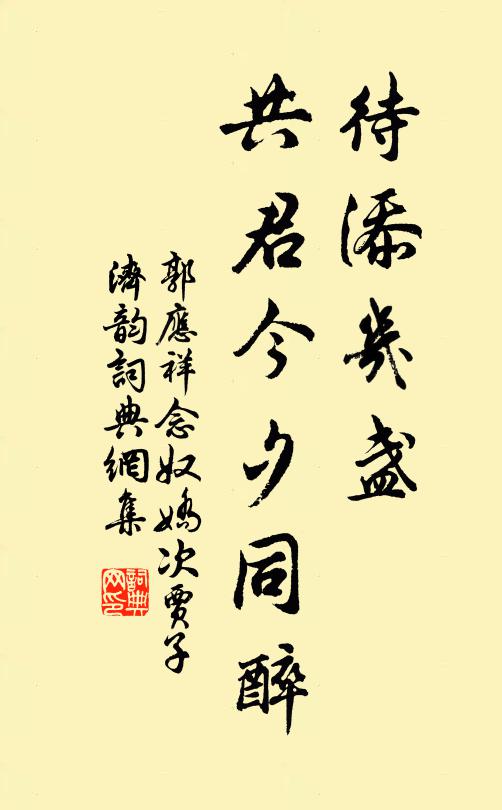 待添幾盏
共君今夕同醉
郭應祥念奴嬌次賈子
濟韵詞典網集
詞典
网印